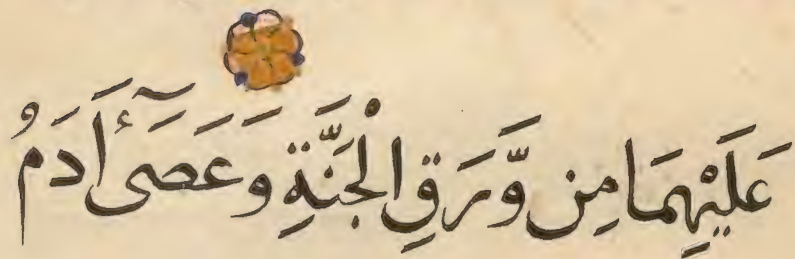 عَلَيْهِمَا مِن وَّرَقِ الْجَنَّةِ وَعَصَىٓ ءَادَمُ